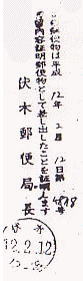 この郵便物は平成12年2月12日第478号
の書留内容証明郵便物として差し出したことを証明します
伏木郵便局長
伏木
12.2.12